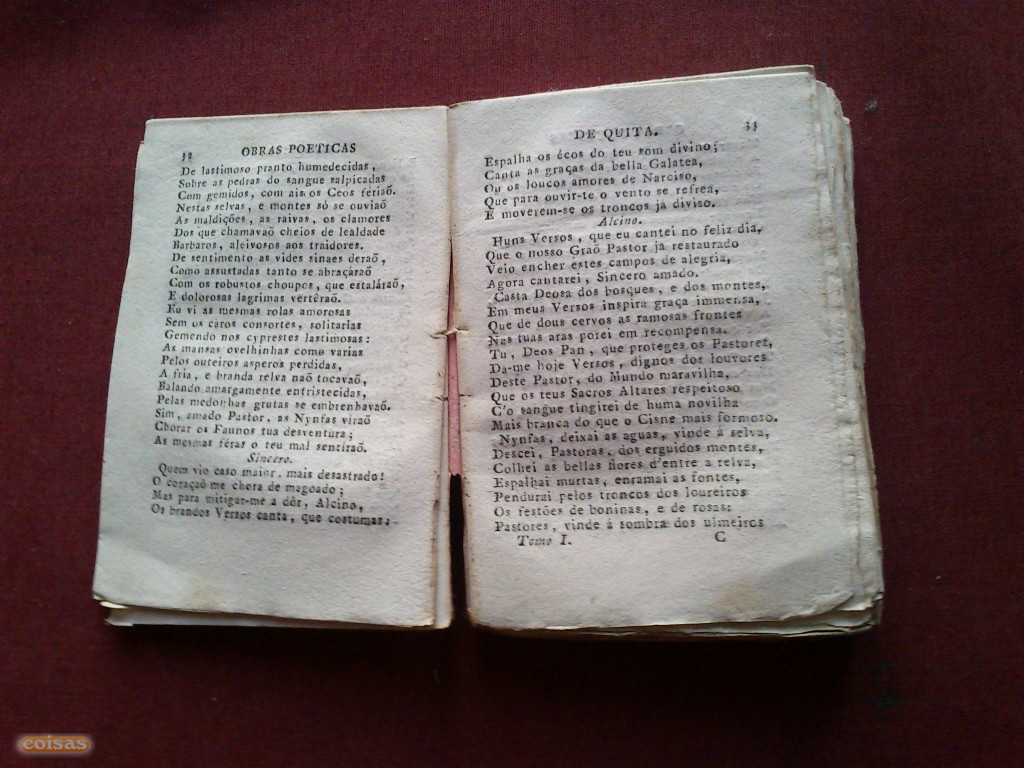 32 OBRAS POETICAS
De lastimoso pranto humedecidas,
Sobre as pedras do sangue salpicadas
Com gemidos, com ais os Ceos feriaõ.
Nestas selvas, e montes só se ouviaõ
As maldições, as raivas, os clamores
Dos que chamavaõ cheios de lealdade
Barbaros, aleivosos aos traidores.
De sentimento as vides sinaes deraõ,
Como assustadas tanto se abraçáraõ
Com os robustos choupos, que estaláraõ,
E dolorosas lagrimas vertêraõ.
Eu vi as mesmas rolas amorosas
Sem os caros consortes, solitarias
Gemendo nos cyprestes lastimosas:
As mansas ovelhinhas como varias
Pelos outeiros asperos perdidas,
A fria, e branda relva naõ tocavaõ,
Balando amargamente entristecidas,
Pelas medonhas grutas se embrenhavaõ.
Sim, amado Pastor, as Nynfas viraõ
Chorar os Faunos tua desventura;
As mesmas féras o teu mal sentiraõ.
Sincero.
Quem vio caso maior, mais desastrado!
O coraçaõ me chora de magoado;
Mas para mitigar-me a dôr, Alcino,
Os brandos Versos canta, que costumas:
DE QUITA. 33
Espalha os écos do teu som divino;
Canta as graças da bella Galatea,
Ou os loucos amores de Narciso,
Que para ouvir-te o vento se refrea,
E moverem-se os troncos já diviso.
Alcino.
Huns Versos, que eu cantei no feliz dia,
Que o nosso Graõ Pastor já restaurado
Veio encher estes campos de alegria,
Agora cantarei, Sincero amado.
Casta Deosa dos bosques, e dos montes,
Em meus Versos inspira graça immensa,
Que de dous cervos as ramosas frontes
Nas tuas aras porei em recompensa.
Tu, Deos Pan, que proteges os Pastores,
Da-me hoje Versos, dignos dos louvores
Deste Pastor, do Mundo maravilha.
Que os teus Sacros Altares respeitoso
C'o sangue tingirei de huma novilha
Mais branca do que o Cisne mais formoso.
Nynfas, deixai as aguas, vinde á selva,
Descei, Pastoras, dos erguidos montes,
Colhei as bellas flores d'entre a relva,
Espalhai murtas, enramai as fontes,
Pendurai pelos troncos dos loureiros
Os festões de boninas, e de rosas:
Pastores, vinde á sombra dos ulmeiros
Tomo I. C
coisas